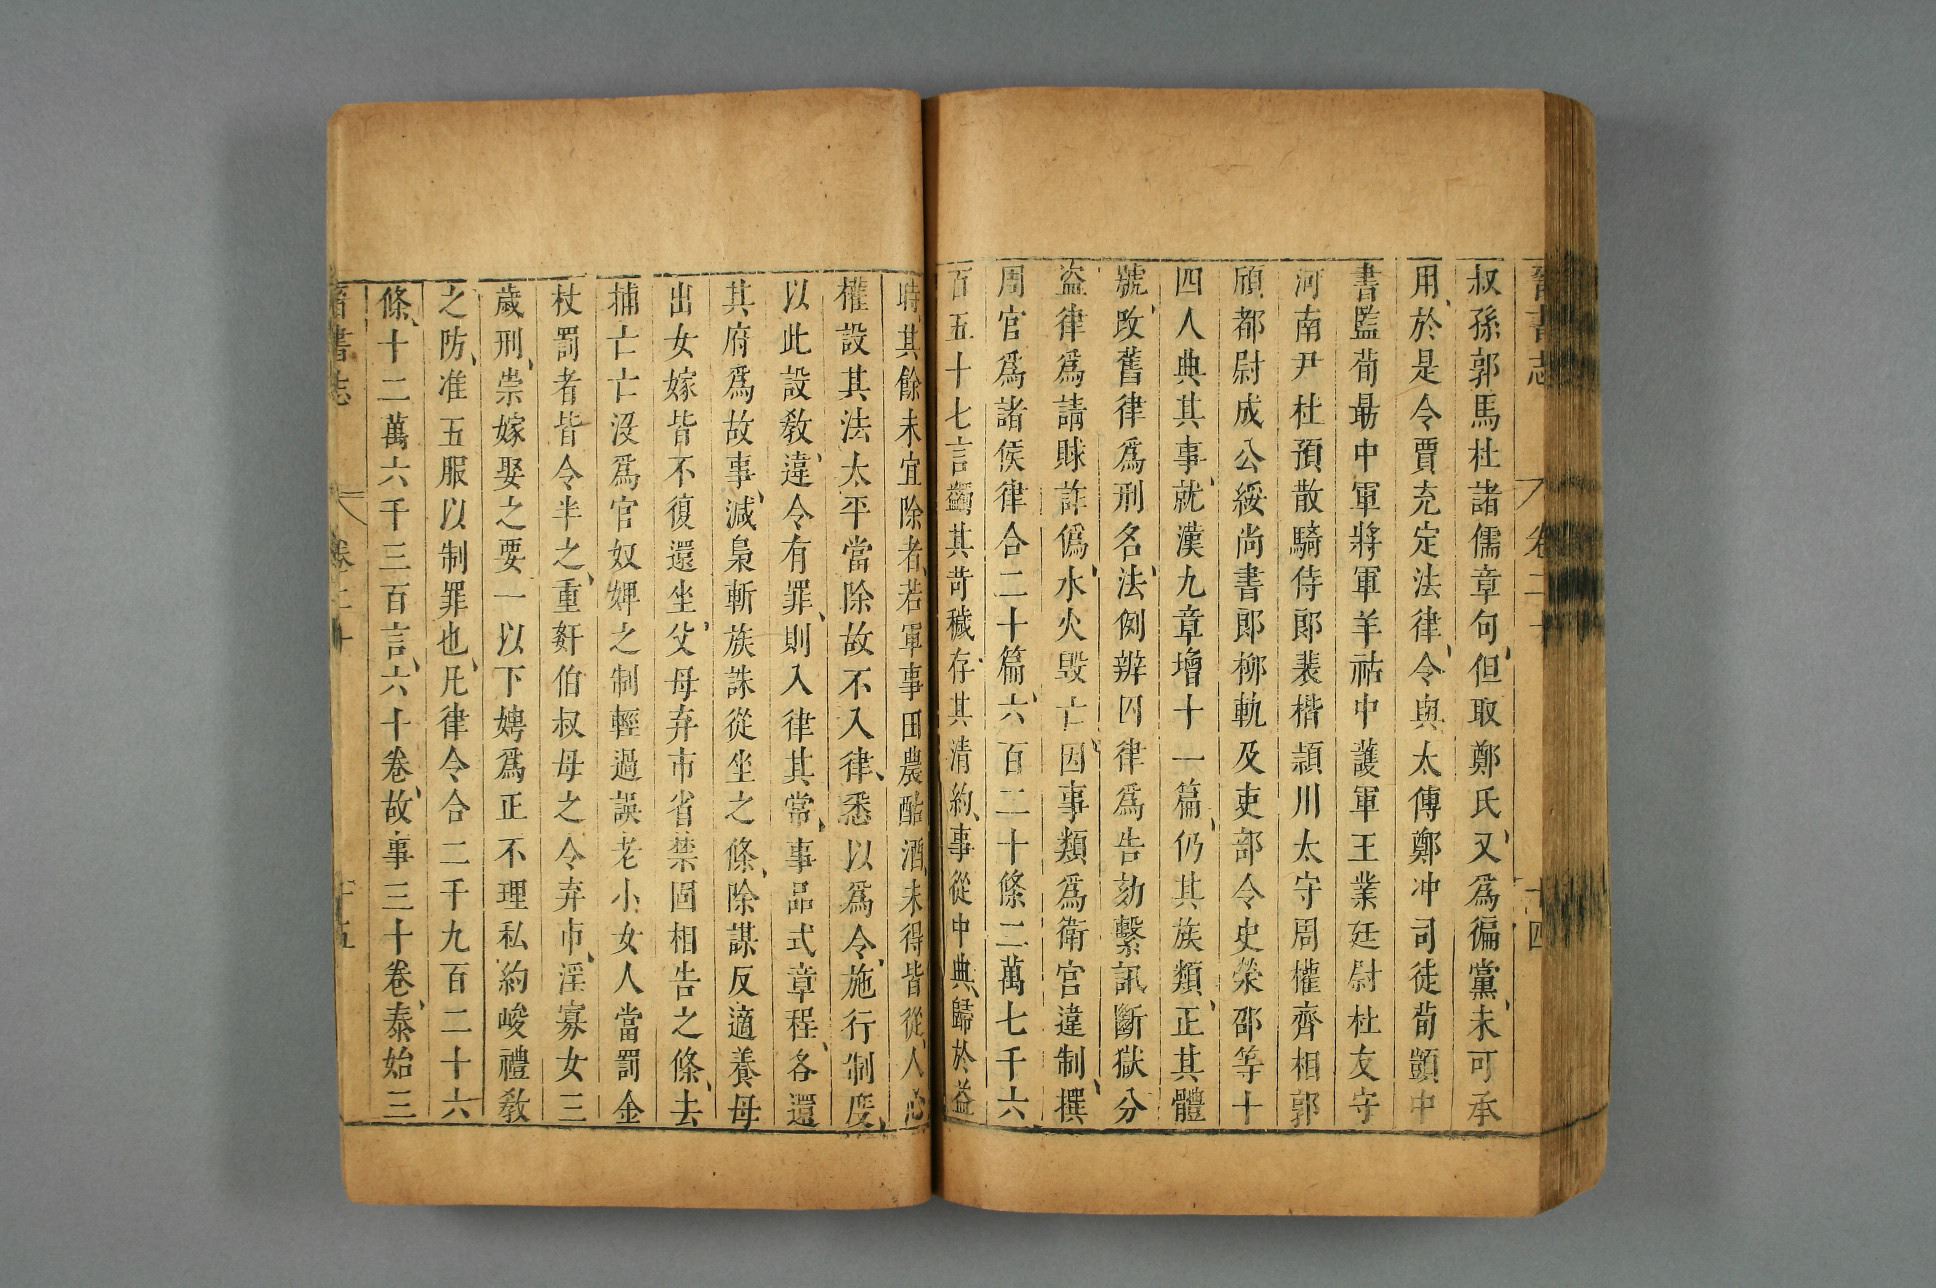 晉書志 卷三十 十四
叔孫郭馬杜諸儒章句但取鄭氏又爲徧黨未可承
用於是令賈充定法律令與太傅鄭冲司徒荀顗中
書監荀勗中軍將軍羊祜中護軍王業廷尉杜友守
河南尹杜預散騎侍郎裴楷潁川太守周權齊相郭
頎都尉成公綏尚書郎柳軌及吏部令史榮邵等十
四人典其事就漢九章增十一篇仍其族類正其體
號改舊律爲刑名法例辨囚律爲告劾繫訊斷獄分
盜律爲請賕詐僞水火毁亡因事類爲衛宮違制撰
周官爲諸侯律合二十篇六百二十條二萬七千六
百五十七言蠲其苛穢存其清約事從中典歸於益
時其餘未宜除者若軍事田農酤酒未得皆從人心
權設其法太平當除故不入律悉以爲令施行制度
以此設敎違令有罪則入律其常事品式章程各還
其府爲故事減梟斬族誅從坐之條除謀反適養母
出女嫁皆不復還坐父母弃市省禁固相告之條去
捕亡亡沒爲官奴婢之制輕過誤老小女人當罰金
杖罰者皆令半之重姧伯叔母之令弃市淫寡女三
歲刑崇嫁娶之要一以下娉爲正不理私約峻禮敎
之防准五服以制罪也凡律令合二千九百二十六
條十二萬六千三百言六十卷故事三十卷泰始三
晉書志 卷三十 十五